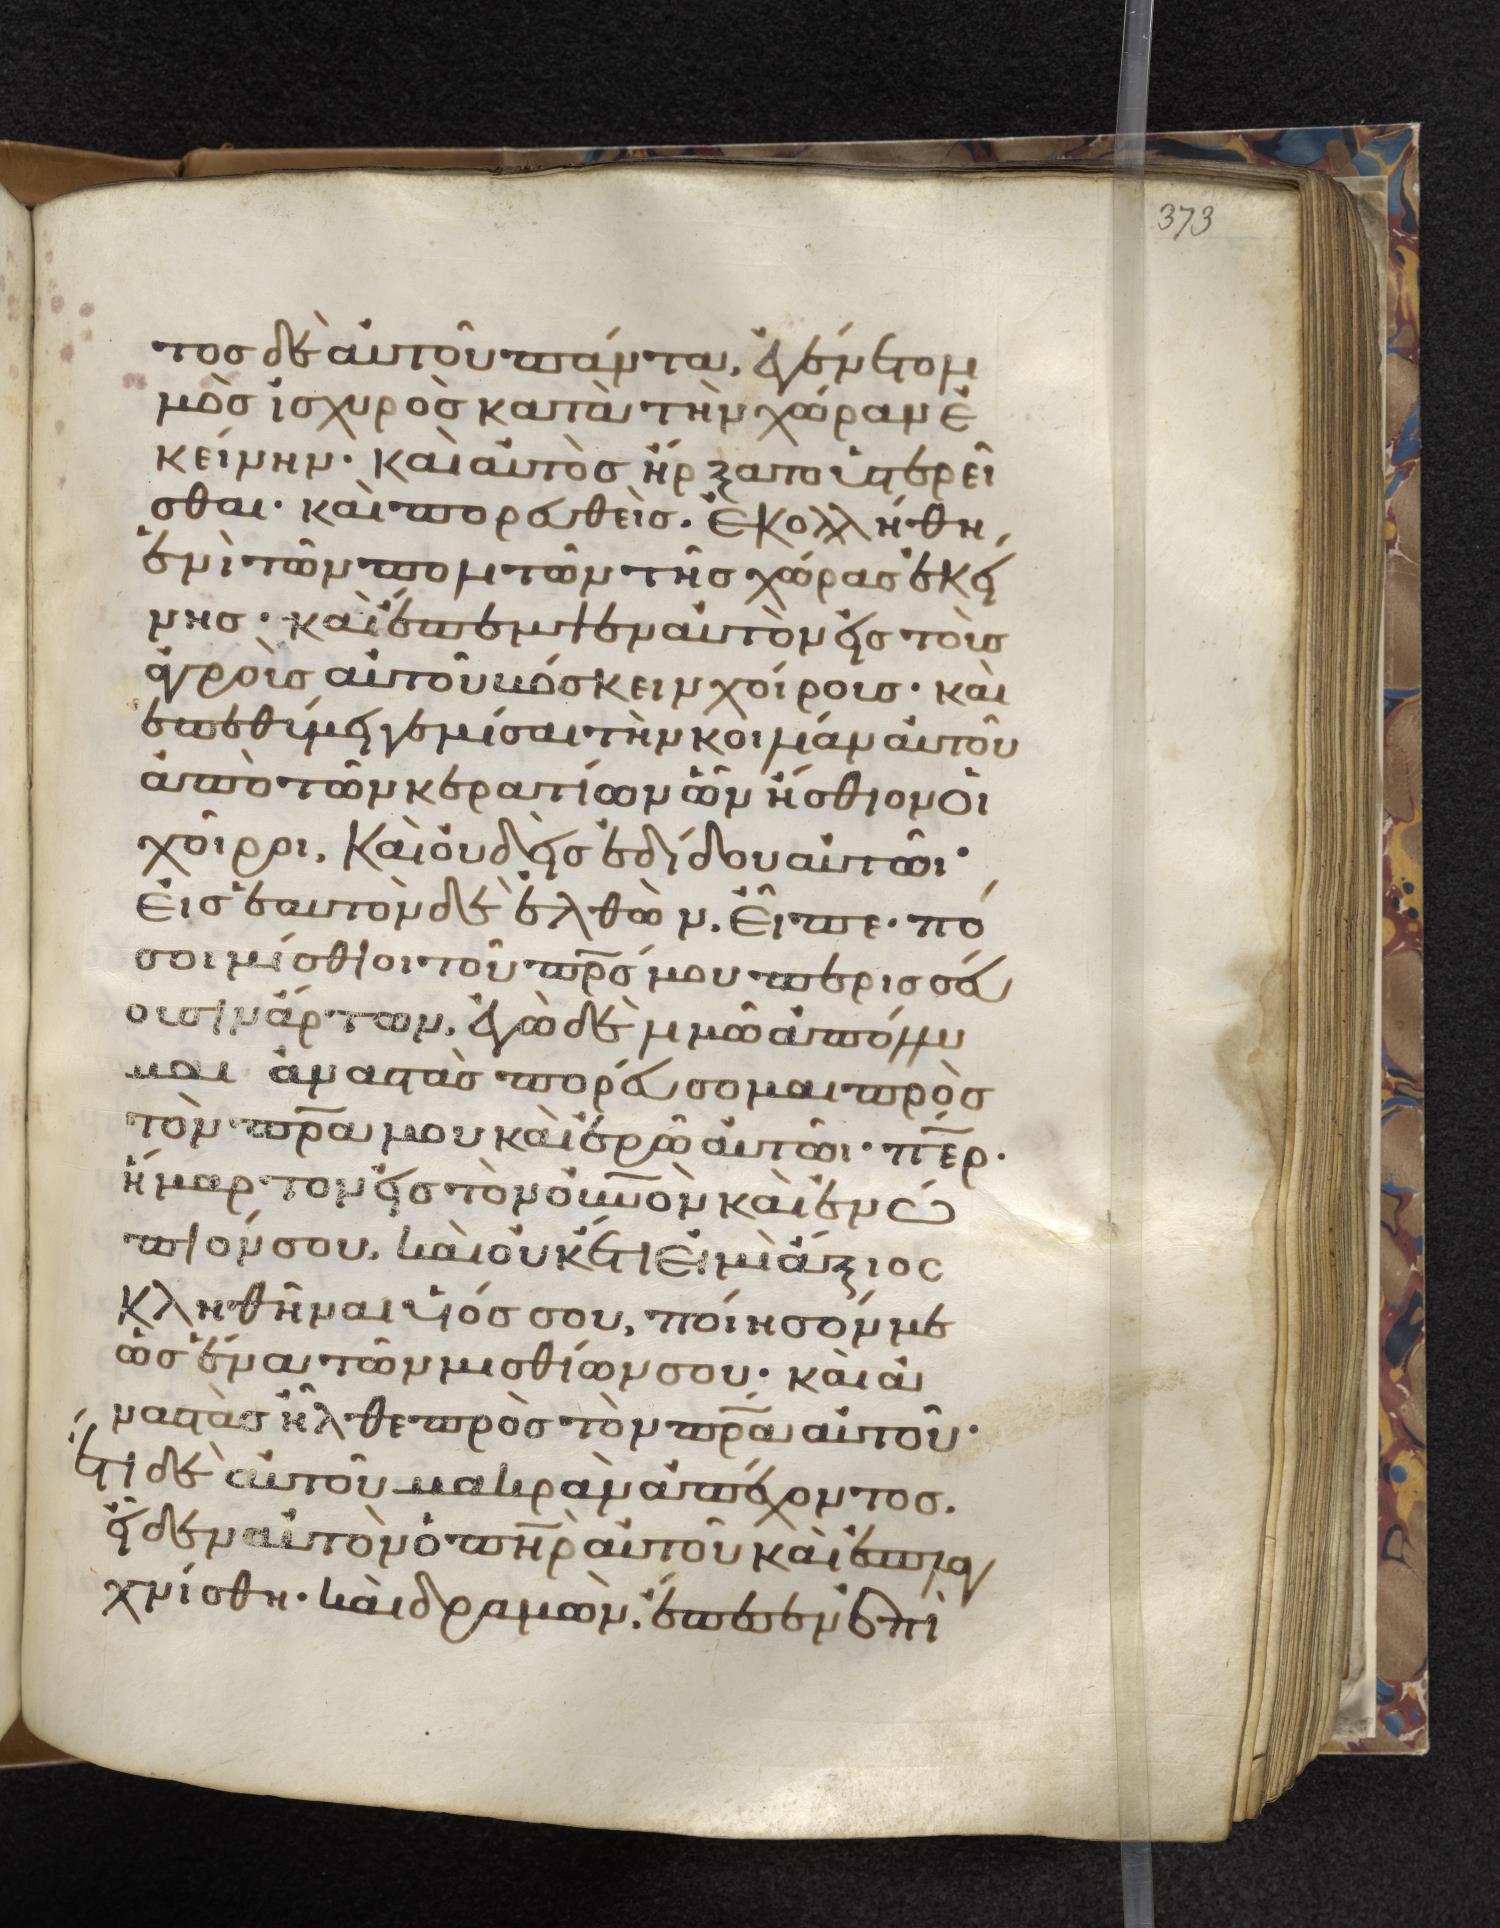 373
τοσ δὲ ἀυτοῦ πάντα, ἐγένετο λι
μὸσ ἰσχυρὸσ κατὰ τὴν χώραν ἐ
κείνην· καὶ αυτὸσ ἤρξατο ὑστερεῖ
σθαι· καὶ πορευθεὶσ. ἐκολλήθη,
ἑνὶ τῶν πολιτῶν τῆσ χώρασ ἐκεί
νησ· καὶ ἔπεμψεν ἀυτὸν εἰσ τοὺσ
ἀγροὺσ αὐτοῦ βόσκειν χοίρουσ· καὶ
ἐπεθύμει γεμίσαι τὴν κοιλίαν ἀυτοῦ
ἀπὸ τῶν κερατίων ὧν ἤσθιον ὁι
χοῖροι, καὶ ὀυδεὶσ ἐδίδου αυτῶι·
Ἐισ ἑαυτὸν δὲ ἐλθὼν, ἔιπε· πό
σοι μίσθιοι τοῦ πρ̅σ́ μου περισσεύ
ουσιν ἄρτων, ἐγὼ δὲ λιμῶ ἀπόλλυ
μαι ἀναστὰσ πορεύσομαι πρὸσ
τὸν πρ̅α μου καὶ ἐρῶ ἀυτῶι· π̅ερ·
ἥμαρτον εἰσ τὸν ὀυ̅νὸν καὶ ἐνώ
πιόν σου, καὶ ὀυκέτι ἐιμὶ ἄξιοσ
κληθῆναι υἱόσ σου, ποίησόν με
ὡσ ἕνα τῶν μισθίων σου· καὶ ἀ
ναστὰσ ἦλθε πρὸσ τὸν πρ̅α ἀυτοῦ·
ἔτι δὲ αὐτοῦ μακρὰν ἀπέχοντοσ.
εἶδεν ἀυτὸν ὁ πη̅ρ ἀυτοῦ καὶ ἐσπλαγ
χνίσθη· καὶ δραμὼν, ἐπέπεσεν ἐπὶ